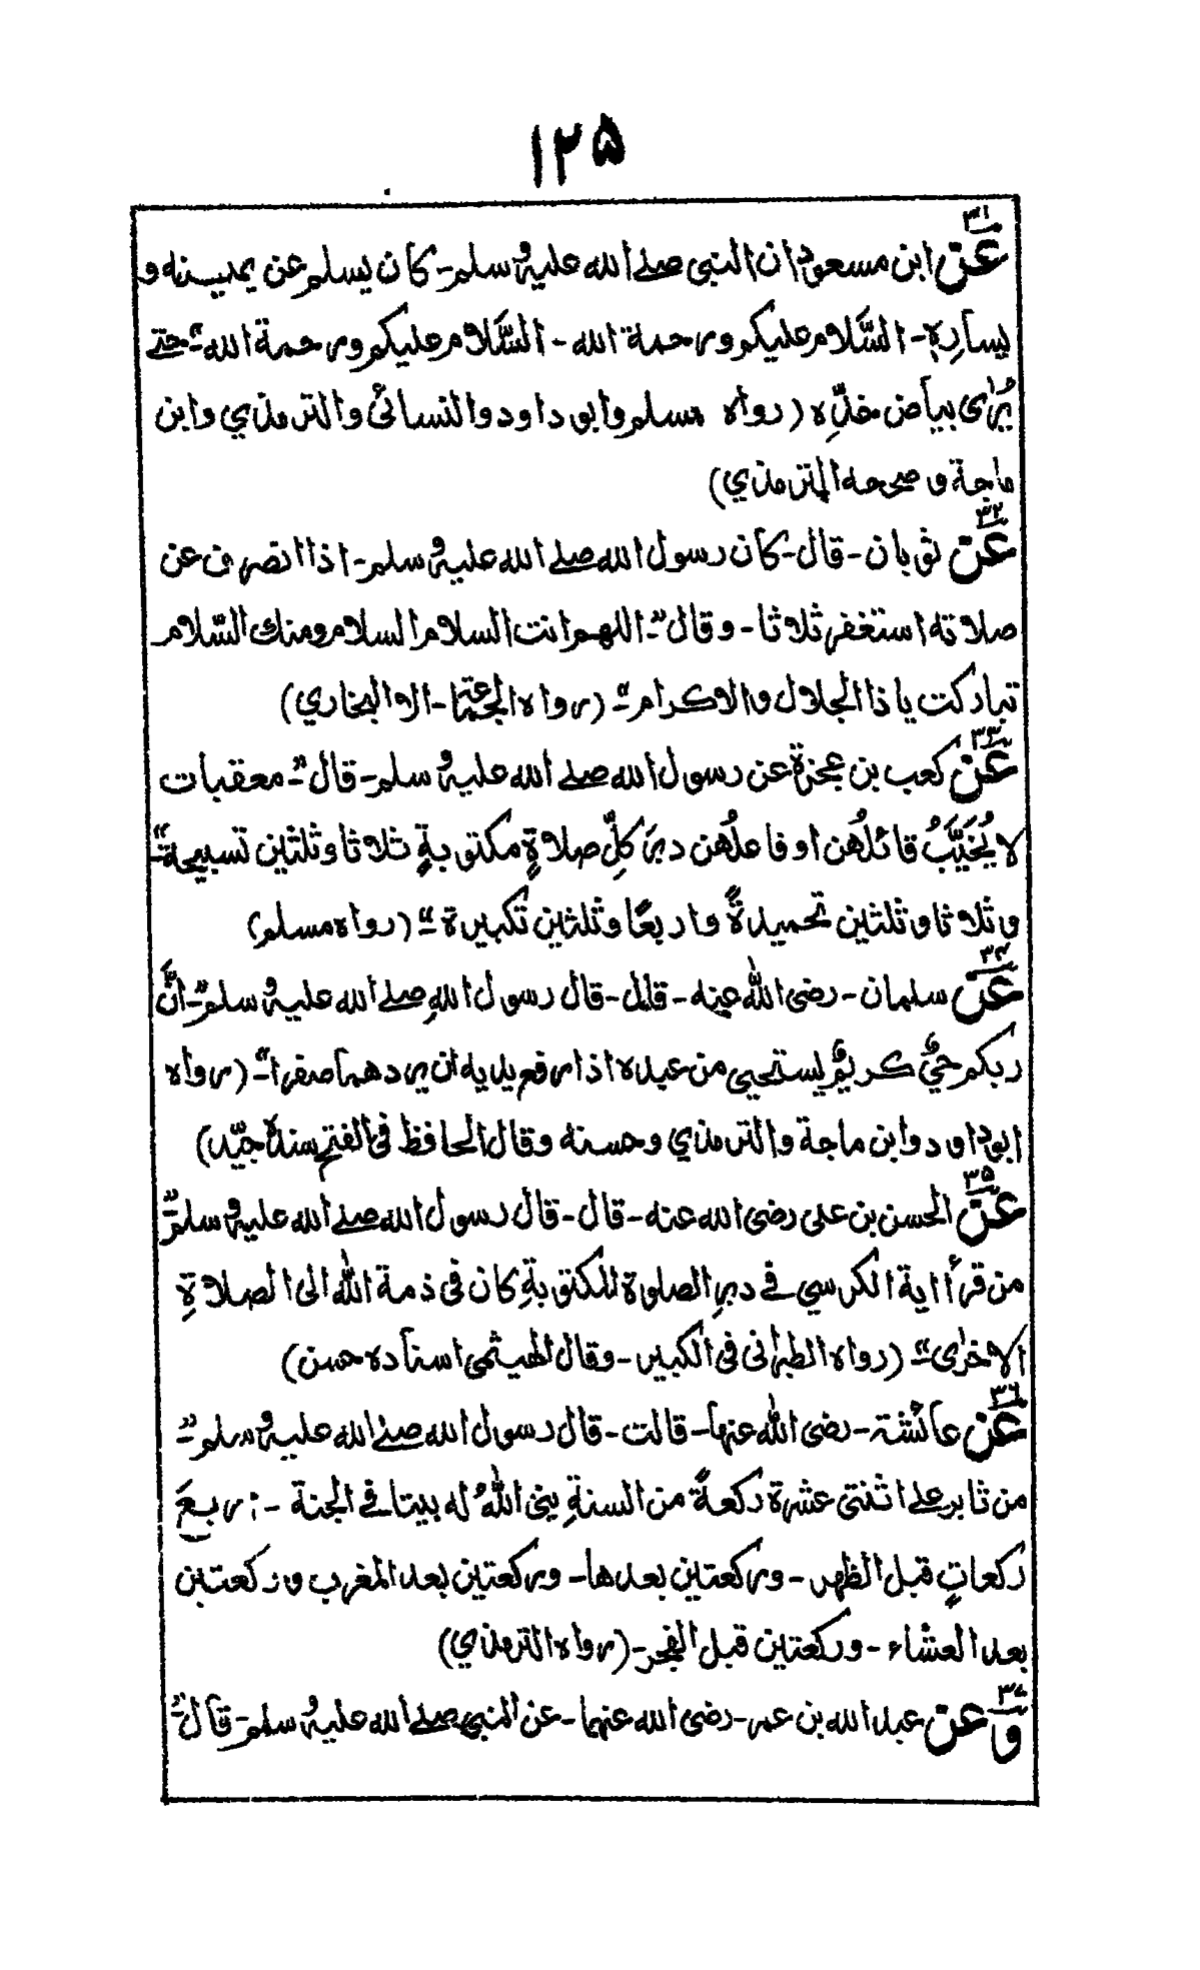 ۱۲۵
۳۱
عن ابن مسعود ان النبی صلے الله علیه وسلم - کان یسلم عن یمینه و
یسارِہٖ - السَّلام علیکم ورحمة الله - السَّلام علیکم ورحمة الله" حتے
یُرٰی بیاض خدِّہ (رواہ مسلم وابوداود والنسائی والترمذي وابن
ماجة وصححه الترمذي)
۳۲
عن ثوبان - قال - کان رسول الله صلے الله علیه وسلم - اذا انصرف عن
صلاته استغفر ثلاثا - وقال "اللهم انت السلام السلام ومنك السّلام
تبارکت یا ذا الجلال والاکرام" (رواہ الجماعة - الا البخاري)
۳۳
عن کعب بن عجرة عن رسول الله صلے الله علیه وسلم - قال "معقبات
لا یُخَیَّبُ قائلُهن اوفاعلُهن دبرَ کلِّ صلاةٍ مکتوبةٍ ثلاثا وثلثین تسبیحة"
وثلاثا وثلثین تحمیدةً واربعًا وثلثین تکبیرة" (رواہ مسلم)
۳۴
عن سلمان - رضی الله عنه - قال - قال رسول اللهِ صلے الله علیه وسلم "انَّ
ربکم حيٌّ کریمٌ یستحیی من عبدہ اذا رفع یدیه ان یردهما صفرا" (رواہ
ابوداود وابن ماجة والترمذي وحسنه وقال الحافظ فی الفتح سندہ جیّد)
۳۵
عن الحسن بن علی رضی الله عنه - قال - قال رسول الله صلے الله علیه وسلم "
من قرأ اٰیة الکرسي فے دبرِ الصلوة المکتوبةِ کان فی ذمة الله الی الصلاةِ
الاخرٰی" (رواہ الطبرانی فی الکبیر - وقال الهیثمی اسنادہ حسن)
۳۶
عن عائشة - رضی الله عنها - قالت - قال رسول الله صلے الله علیه وسلم "
من ثابر علے اثنتی عشرة رکعةً من السنةِ بنی اللهُ له بیتا فے الجنة - : اربعَ
رکعاتٍ قبل الظهر - ورکعتین بعدها - ورکعتین بعد المغرب ورکعتین
بعد العشاء - ورکعتین قبل الفجر - (رواہ الترمذي)
۳۷
وعن عبد الله بن عمر - رضی الله عنهما - عن النبی صلے الله علیه وسلم - قال "